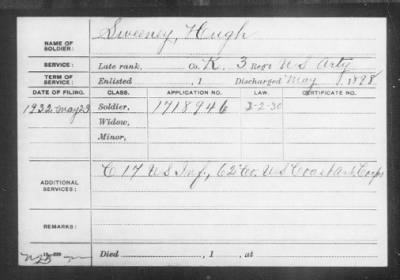 NAME OF SOLDIER: Sweeney, Hugh
SERVICE: Late rank, Co. K, 3 Reg't U S Arty
TERM OF SERVICE: Enlisted , 1 Discharged May , 1898
DATE OF FILING. CLASS. APPLICATION NO. LAW. CERTIFICATE NO.
1932 May 23 Soldier, 1718946 3-2-30
Widow,
Minor,
ADDITIONAL SERVICES: C 17 U S Inf., 62" Co. U S Coast Art. Corps
REMARKS:
Died , 1 , at